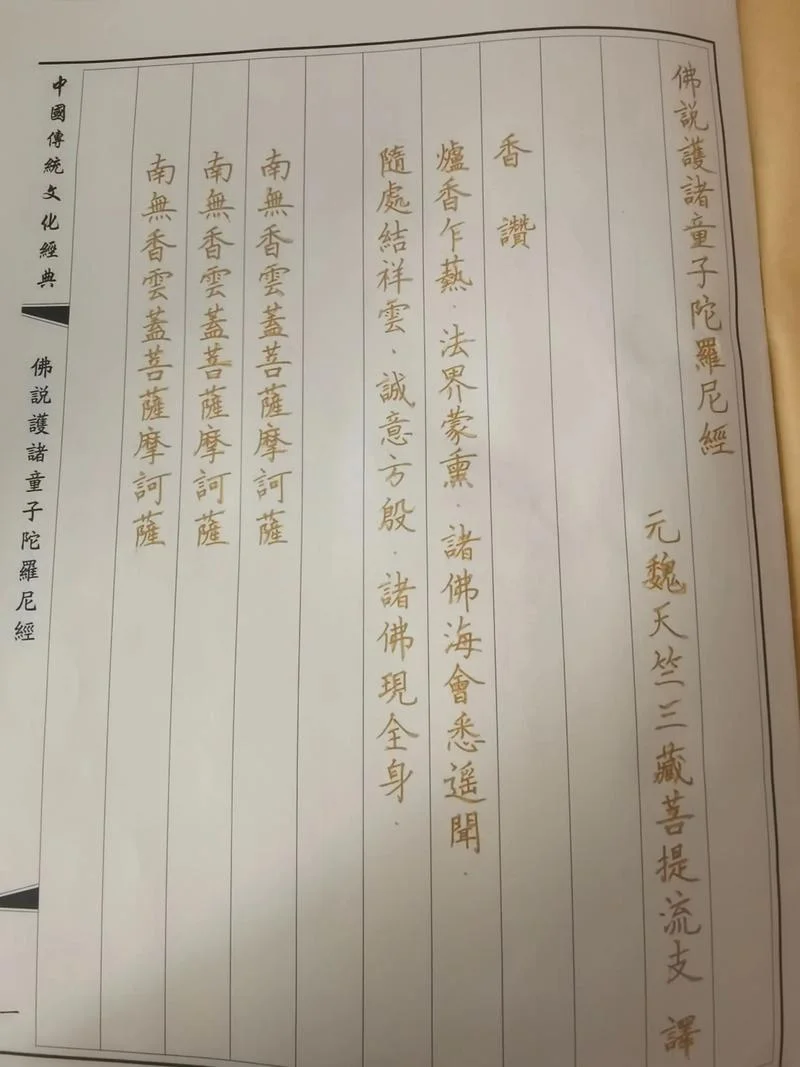 佛説護諸童子陀羅尼經
元魏天竺三藏菩提流支 譯
香 讚
爐香乍爇．法界蒙熏．諸佛海會悉遥聞．
隨處結祥雲．誠意方殷．諸佛現全身．
南無香雲蓋菩薩摩訶薩
南無香雲蓋菩薩摩訶薩
南無香雲蓋菩薩摩訶薩
中國傳統文化經典
佛説護諸童子陀羅尼經
一